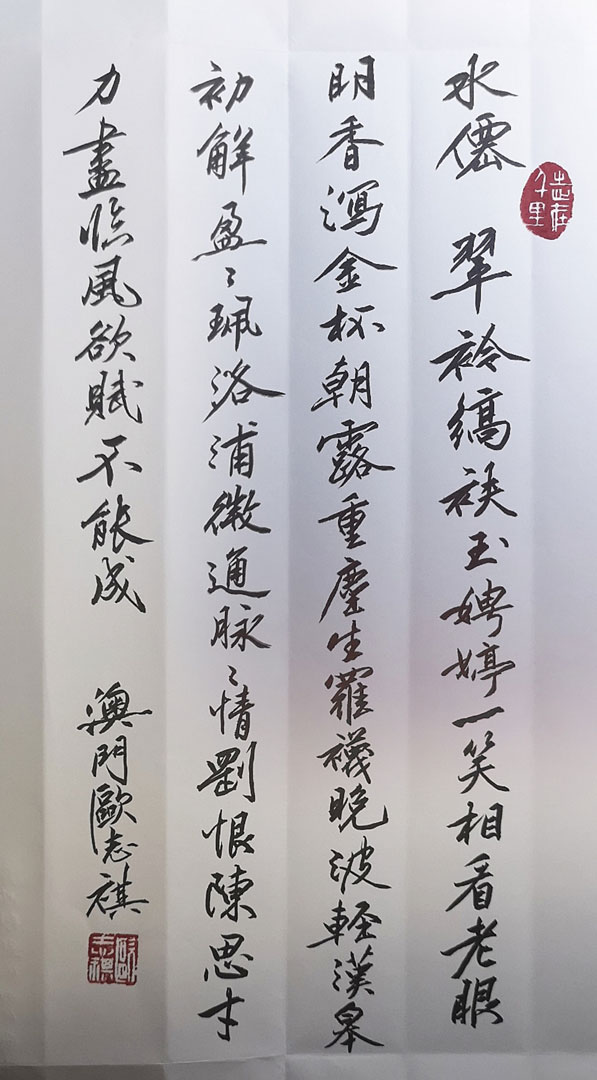 志在千里
水僊　翠袊縞袂玉娉婷一笑相看老眼
明香瀉金杯朝露重塵生羅襪晚波輕漢皋
初解盈〻珮洛浦微通脉〻情劉恨陳思才
力盡臨風欲賦不能成　澳門歐志祺
歐志祺